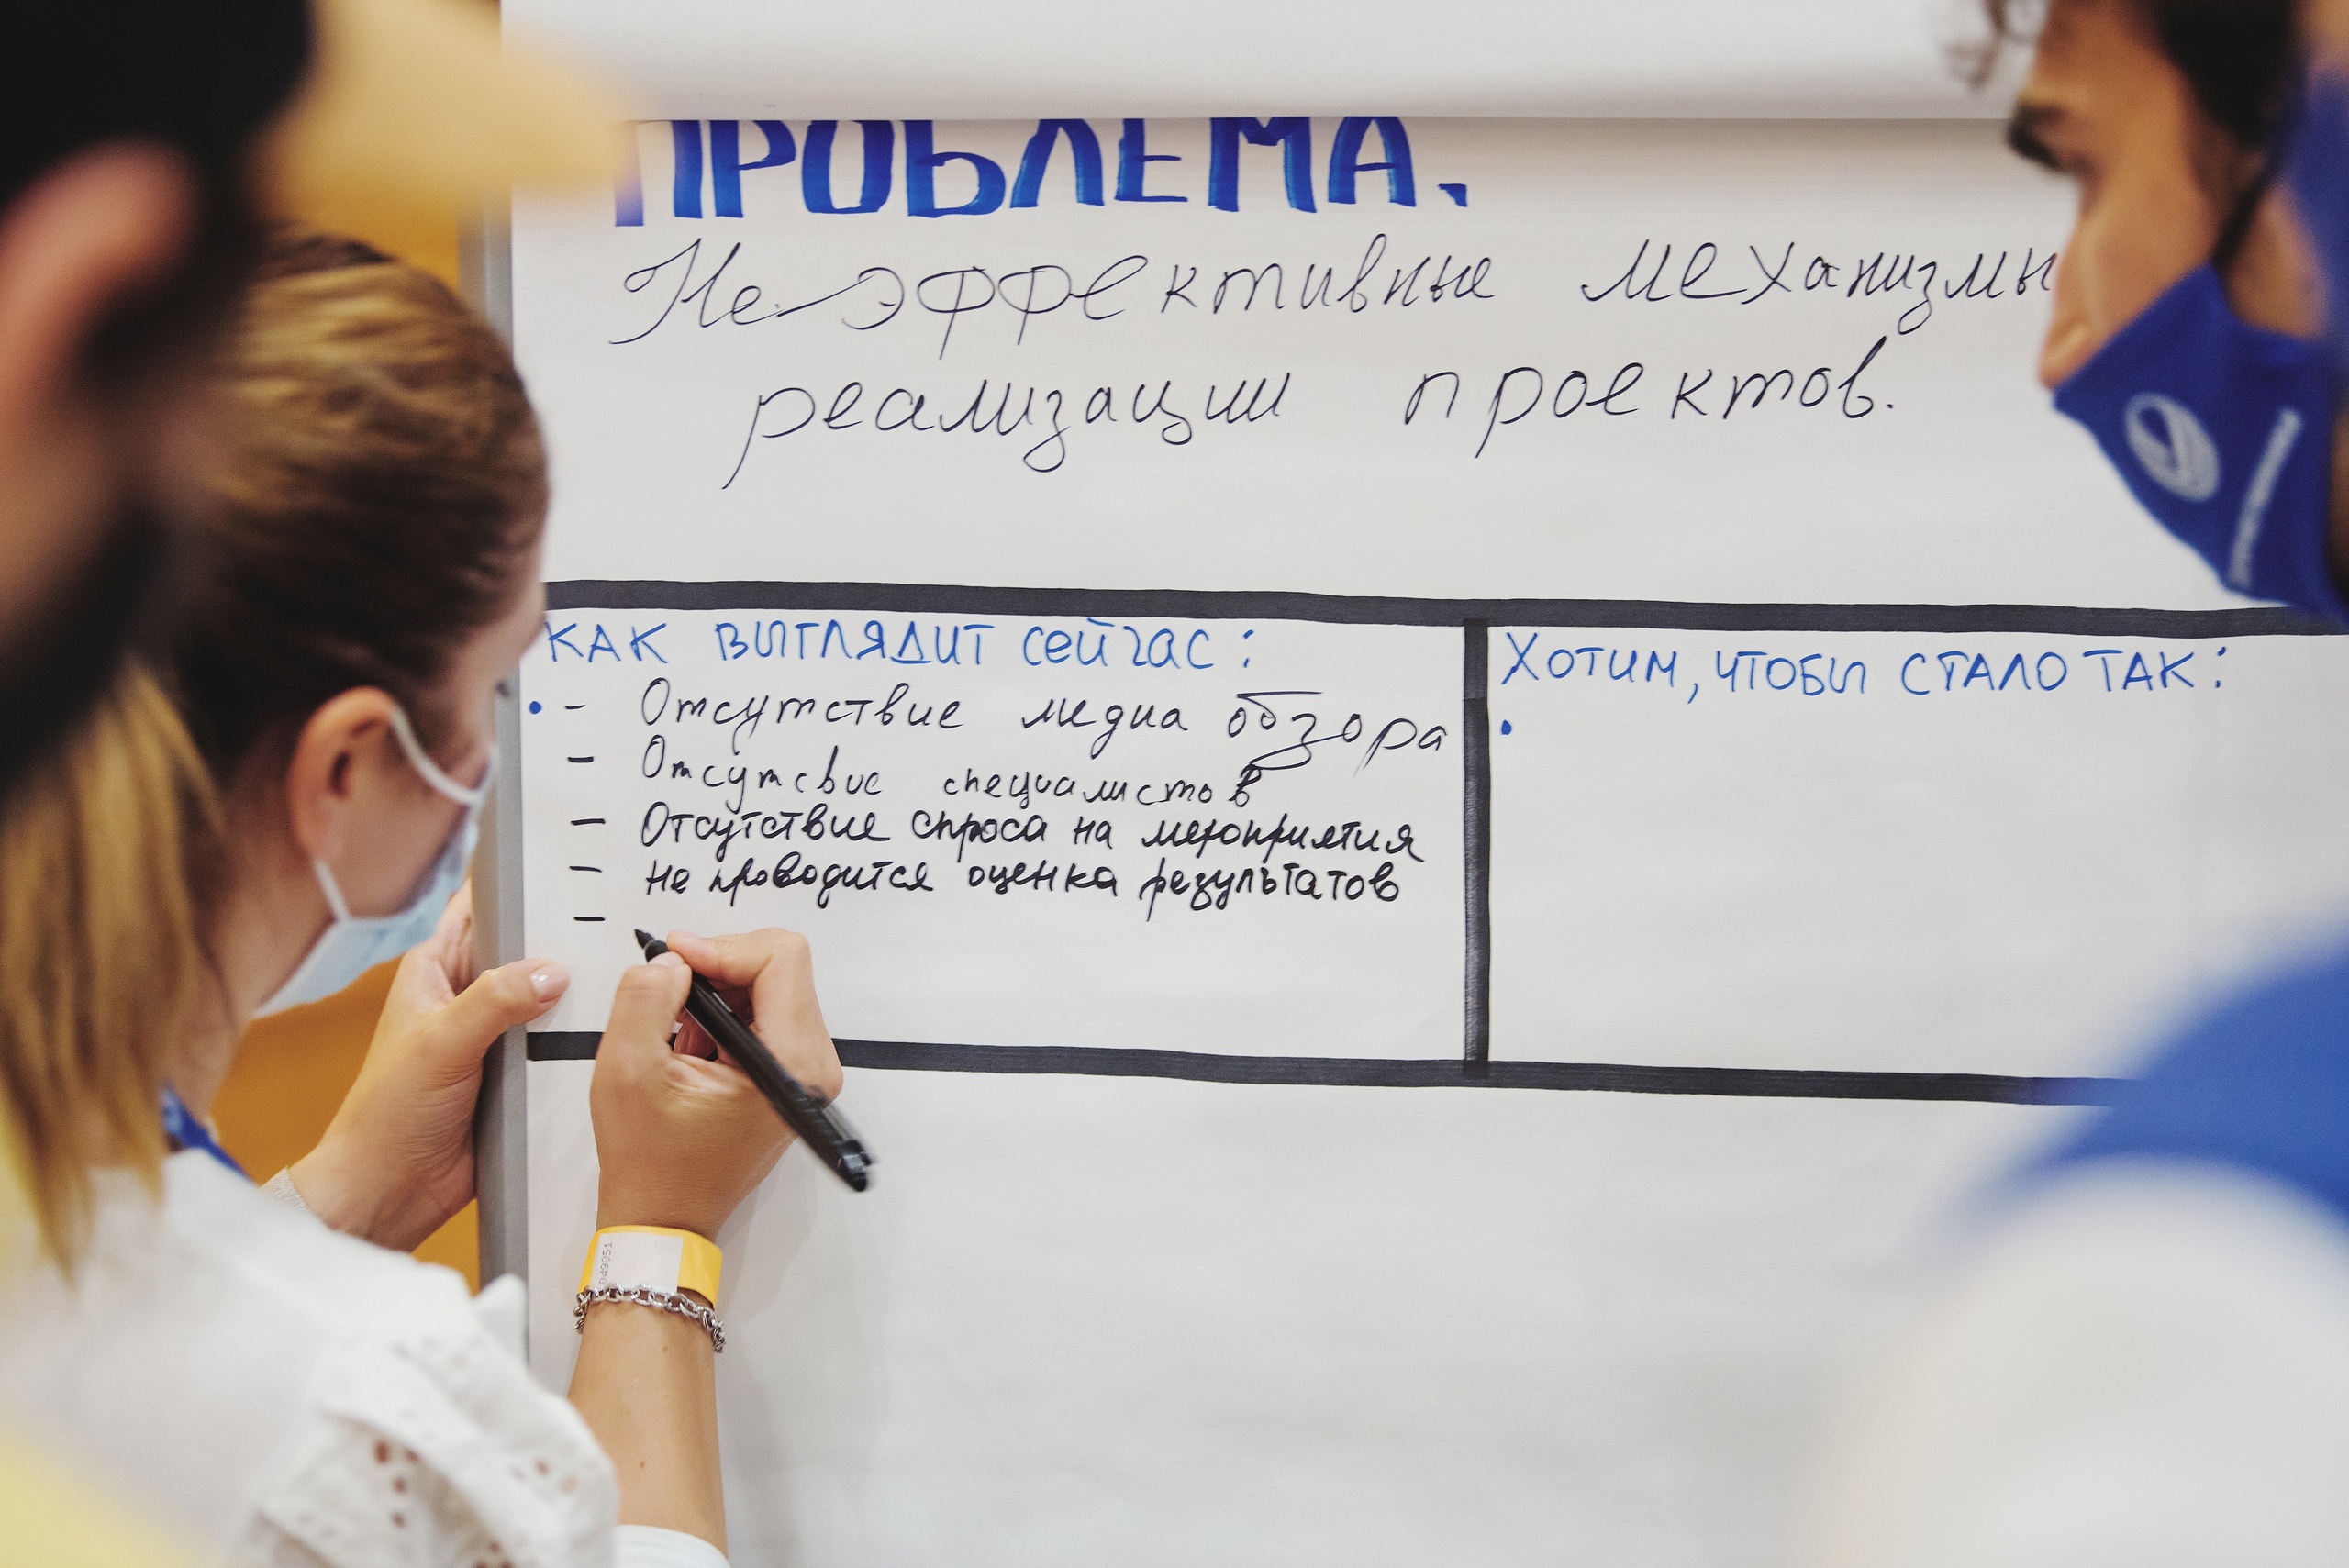 ПРОБЛЕМА.
Неэффективные механизмы
реализации проектов.
КАК ВЫГЛЯДИТ СЕЙЧАС:
• - Отсутствие медиа обзора
- Отсутсвие специалистов
- Отсутствие спроса на мероприятия
- не проводится оценка результатов
-
ХОТИМ, ЧТОБЫ СТАЛО ТАК:
•
049051